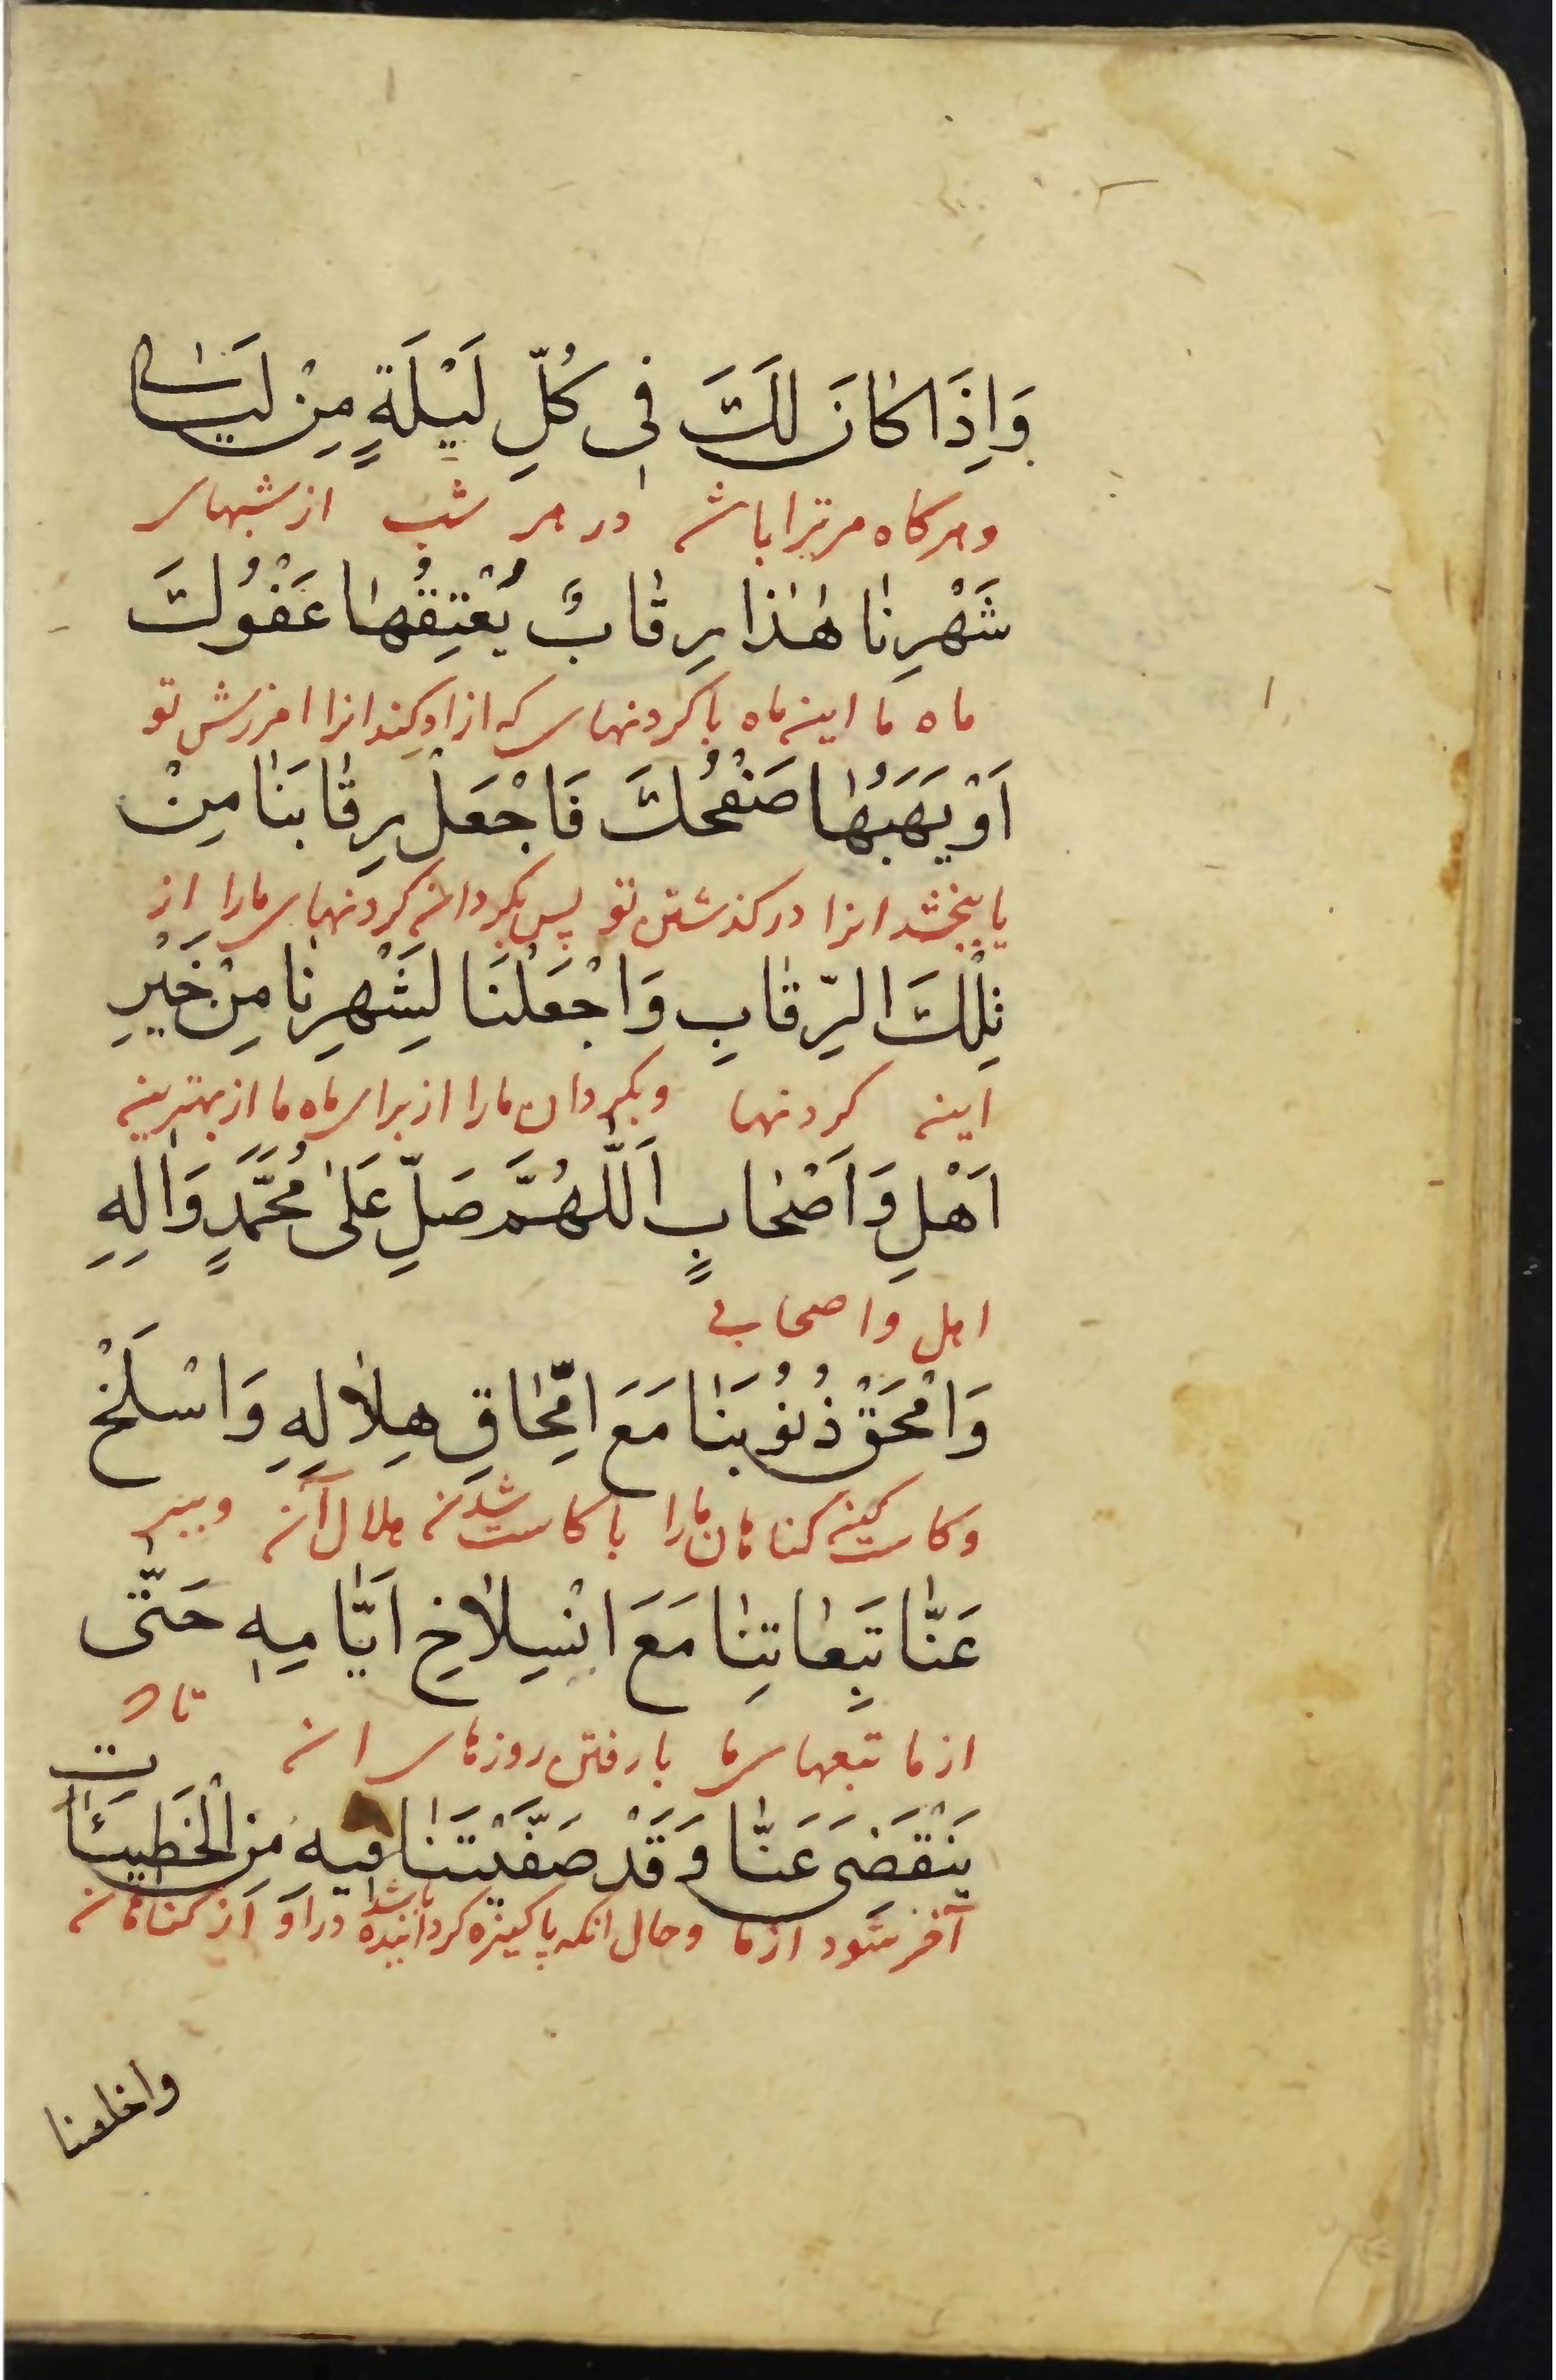 وَاِذَا كٰانَ لَكَ فِى كُلِّ لَيْلَةٍ مِنْ لَيٰالِى
و هر كاه مر ترا باشد در هر شب از شبهاى
شَهْرِنٰا هٰذٰا رِقٰابٌ يُعْتِقُهٰا عَفْوُكَ
ماه ما اين ماه با كردنهاى كه ازاد كند انرا امزرش تو
اَوْ يَهَبُهٰا صَفْحُكَ فَاجْعَلْ رِقٰابَنٰا مِنْ
يا ببخشد انرا در كذشتن تو پس بكردان كردنهاى مارا از
تِلْكَ الرِّقٰابِ وَاجْعَلْنَا لِشَهْرِنٰا مِنْ خَيْرِ
اين كردنها و بكردان مارا از براى ماه ما از بهترين
اَهْلٍ وَاَصْحٰابٍ اَللّٰهُمَّ صَلِّ عَلىٰ مُحَمَّدٍ وَاٰلِهِ
اهل و اصحابى
وَامْحَقْ ذُنُوبَنٰا مَعَ امِّحٰاقِ هِلٰالِهِ وَاسْلَخْ
و كاست كن كناهان مارا با كاست شدن هلال آن و ببر
عَنّٰا تَبِعٰاتِنٰا مَعَ انْسِلٰاخِ اَيّٰامِهِ حَتّٰى
از ما تبعهاى ما با رفتن روزهاى ان تا
يَنْقَضِىَ عَنّٰا وَقَدْ صَفَّيْتَنٰا فيهِ مِنَ الْخَطيئٰاتِ
آخر شود از ما و حال انكه پاكيزه كردانيده باشد در او از كناهان
واخلصنا